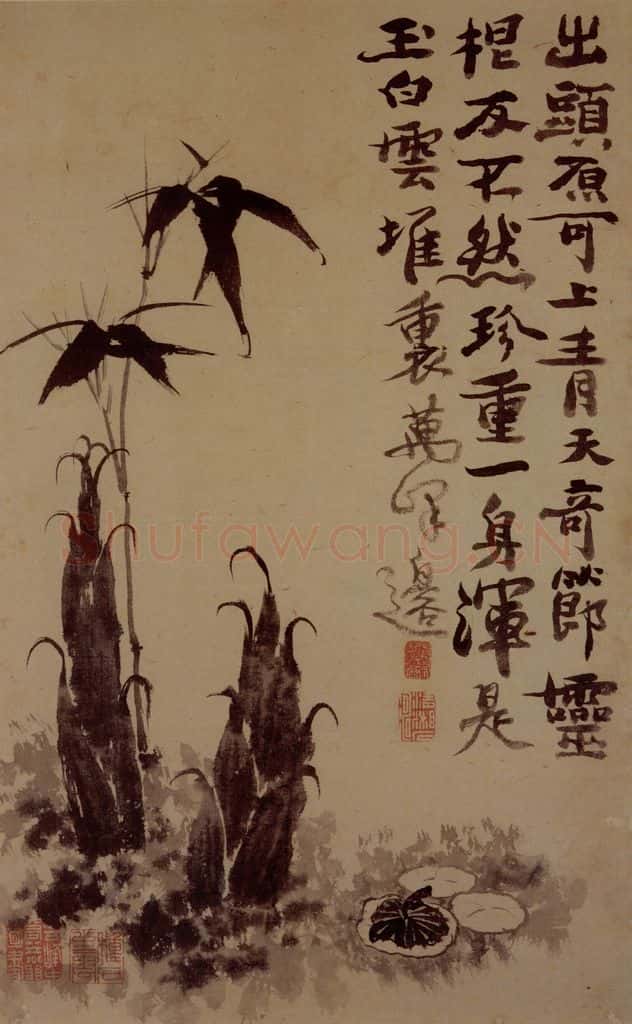 出頭原可上青天奇節靈
根反不然珍重一身渾是
玉白雲堆裏萬峰邊
Shufawang.CN